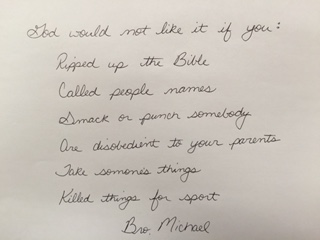 God would not like it if you:
Ripped up the Bible
Called people names
Smack or punch somebody
Are disobedient to your parents
Take somone's things
Killed things for sport
Bro. Michael